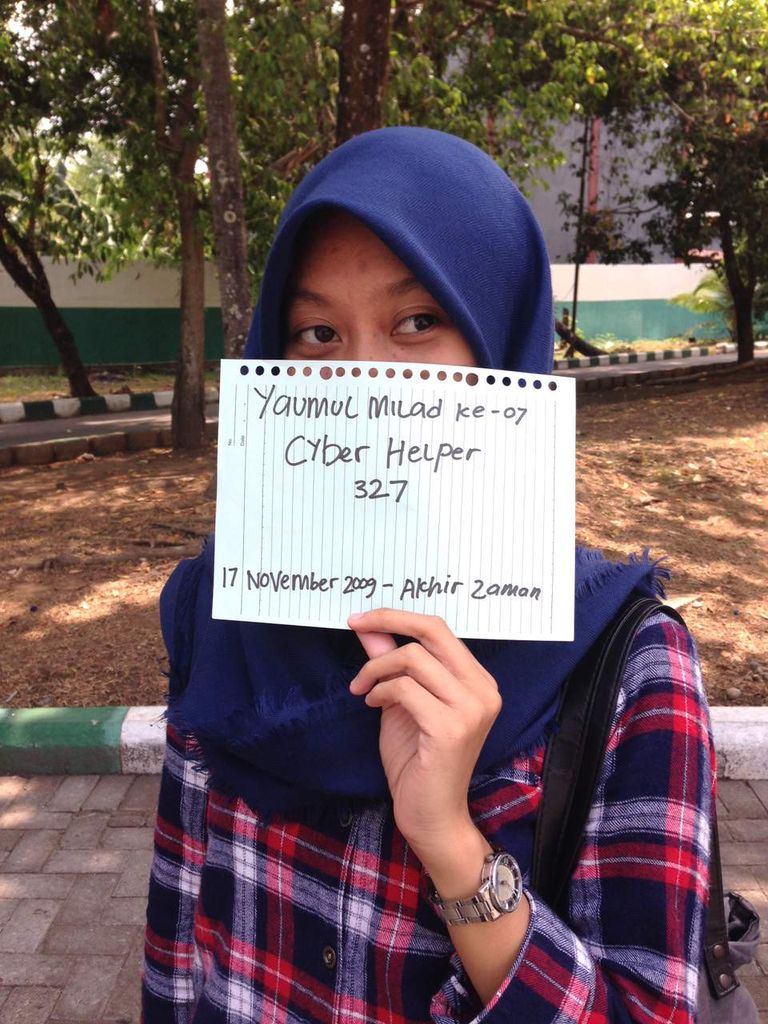 No:
Date:
Yaumul Milad ke-07
Cyber Helper
327
17 November 2009 - Akhir Zaman